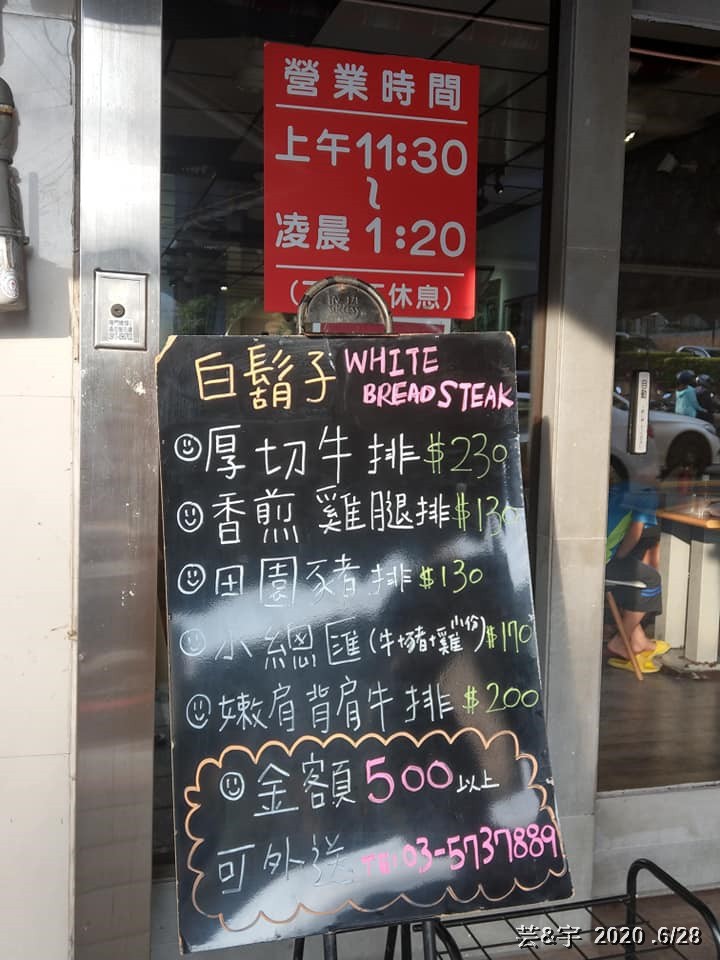 營業時間
上午11:30
~
凌晨1:20
休息)
白鬍子 WHITE
BREAD STEAK
厚切牛排$230
香煎雞腿排$130
田園豬排$130
小總匯(牛+豬+雞小份)$170
嫩肩背肩牛排$200
金額500以上
可外送 TEL:03-5737889
自動
芸&宇 2020.6/28